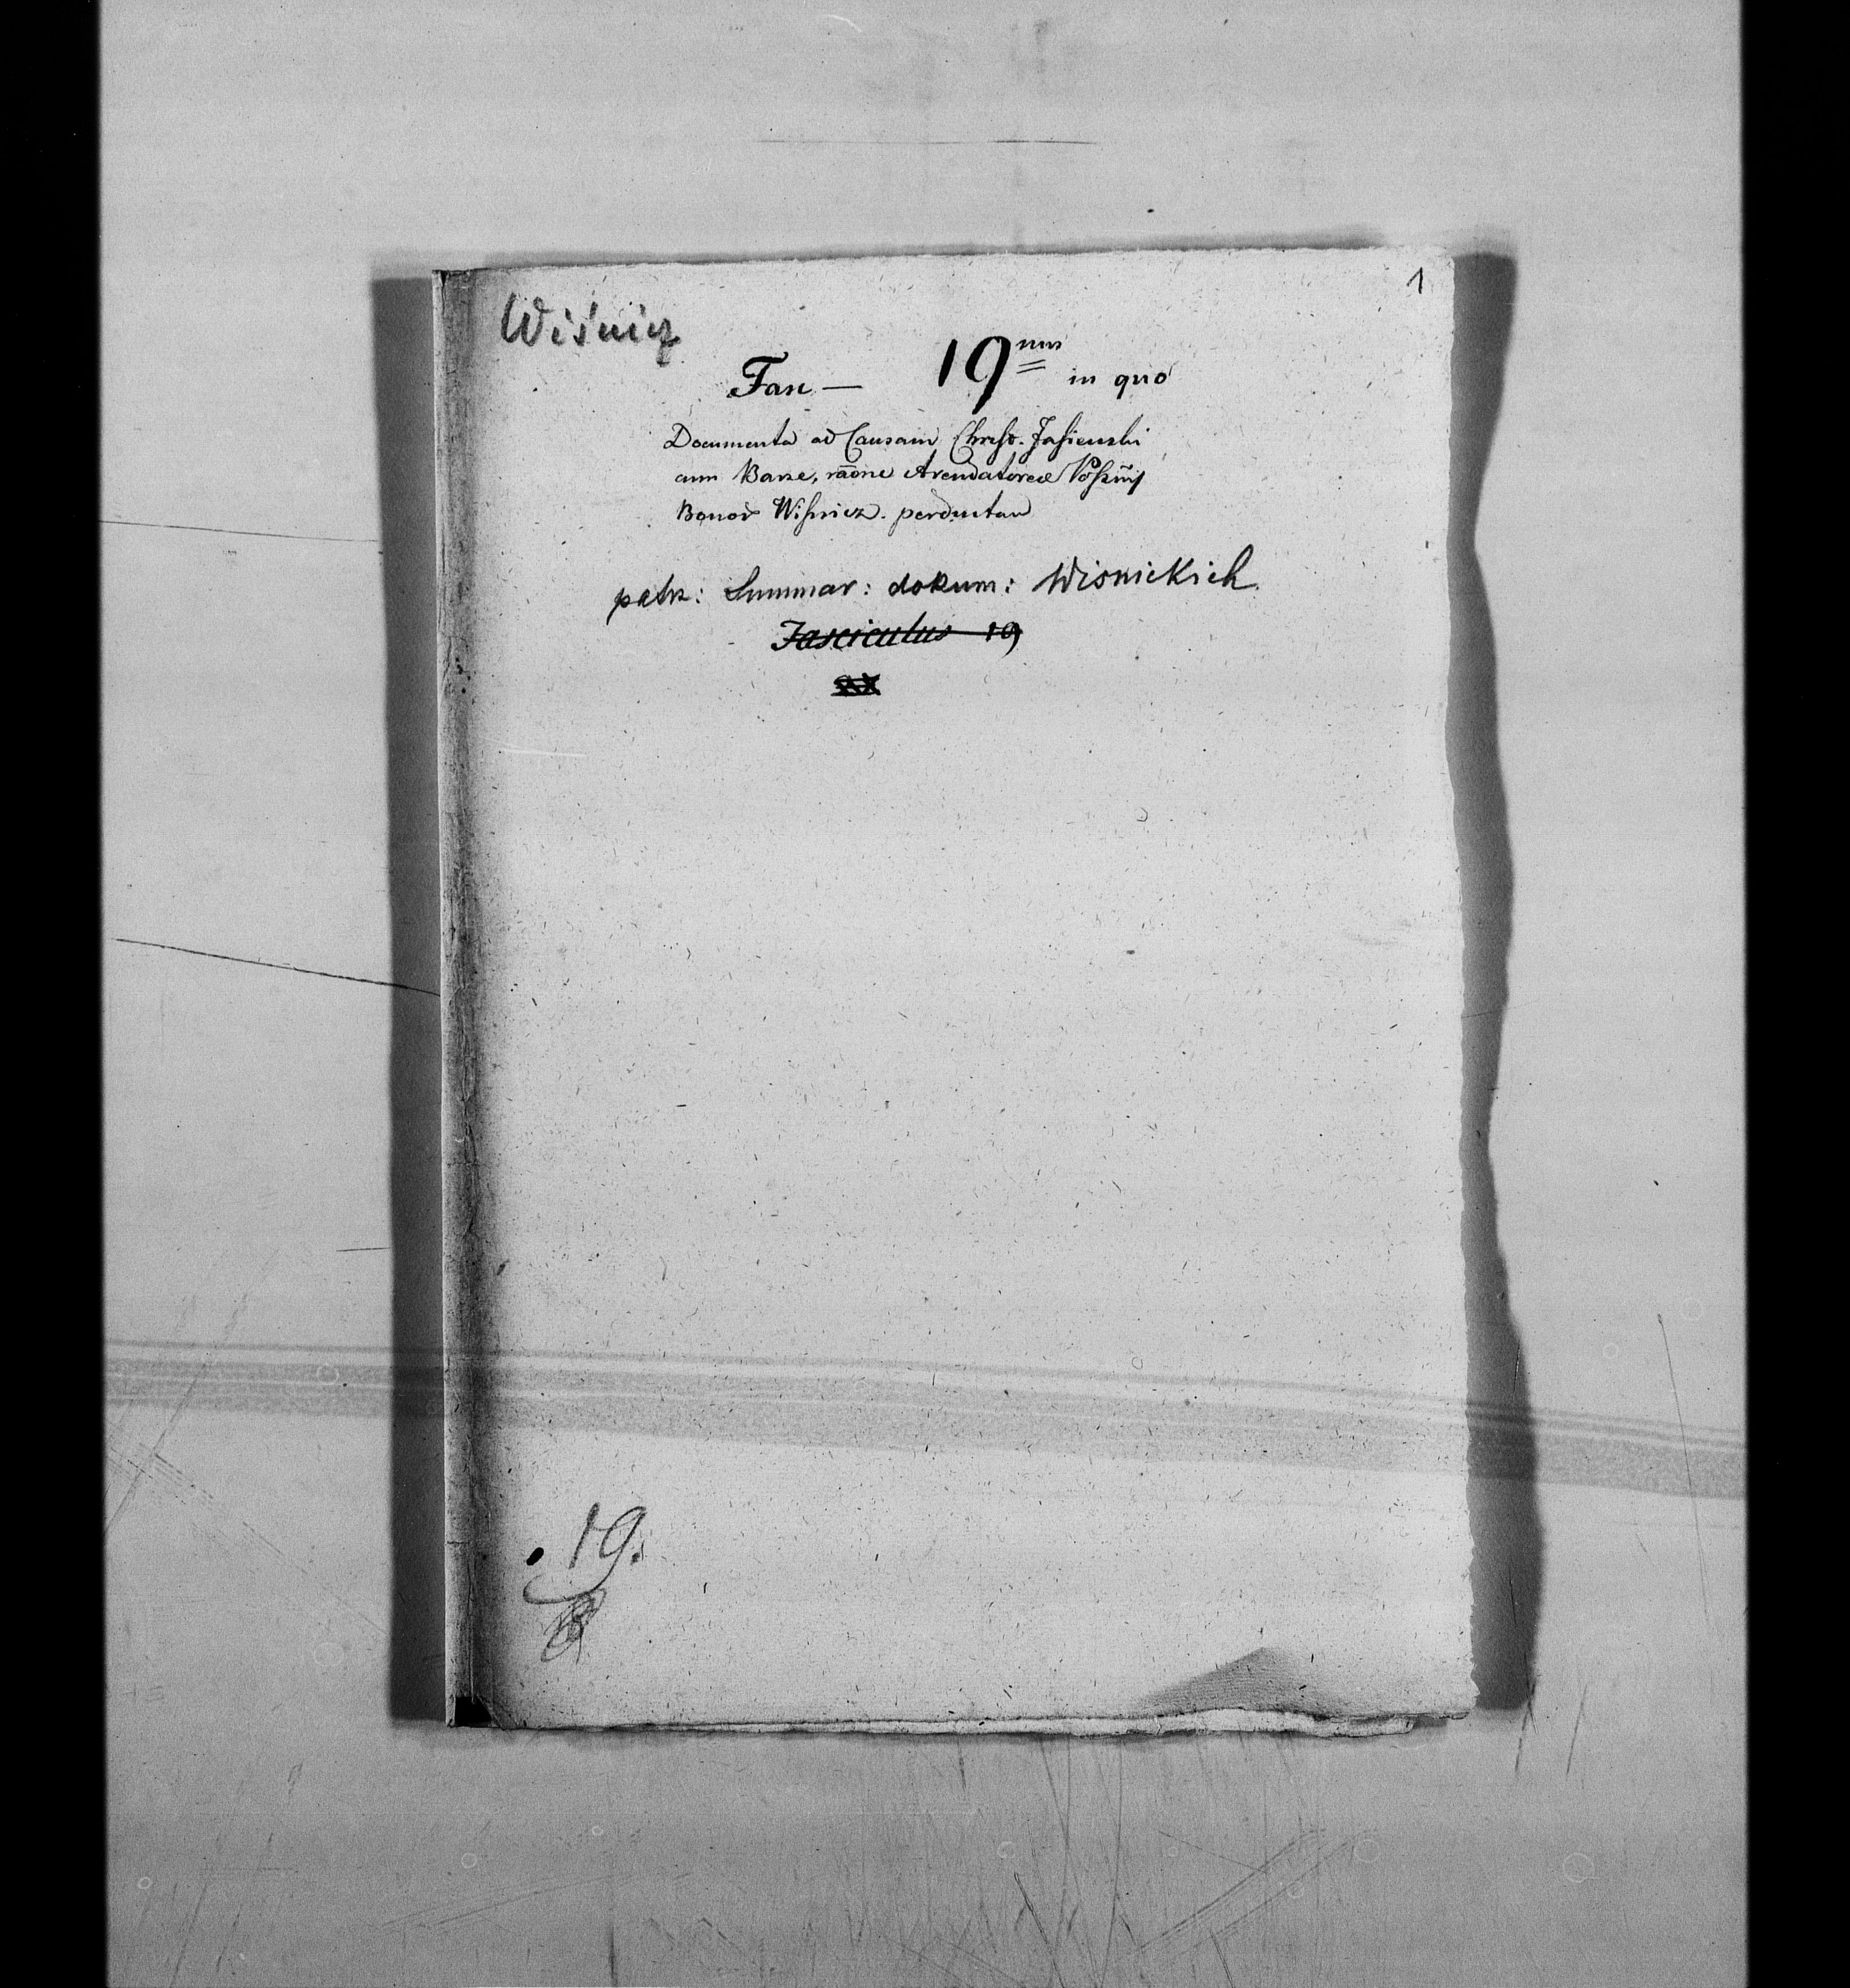 1
Wiśnicz
Fasc — 19nus in quo
Documenta ad Causam Christ. Jasienski
cum Barze, raõne Arendatoreæ Possnis
Bonor Wisnicz. perductam
patrz: Summar: dokum: Wisnickich
Fasciculus 19
19.